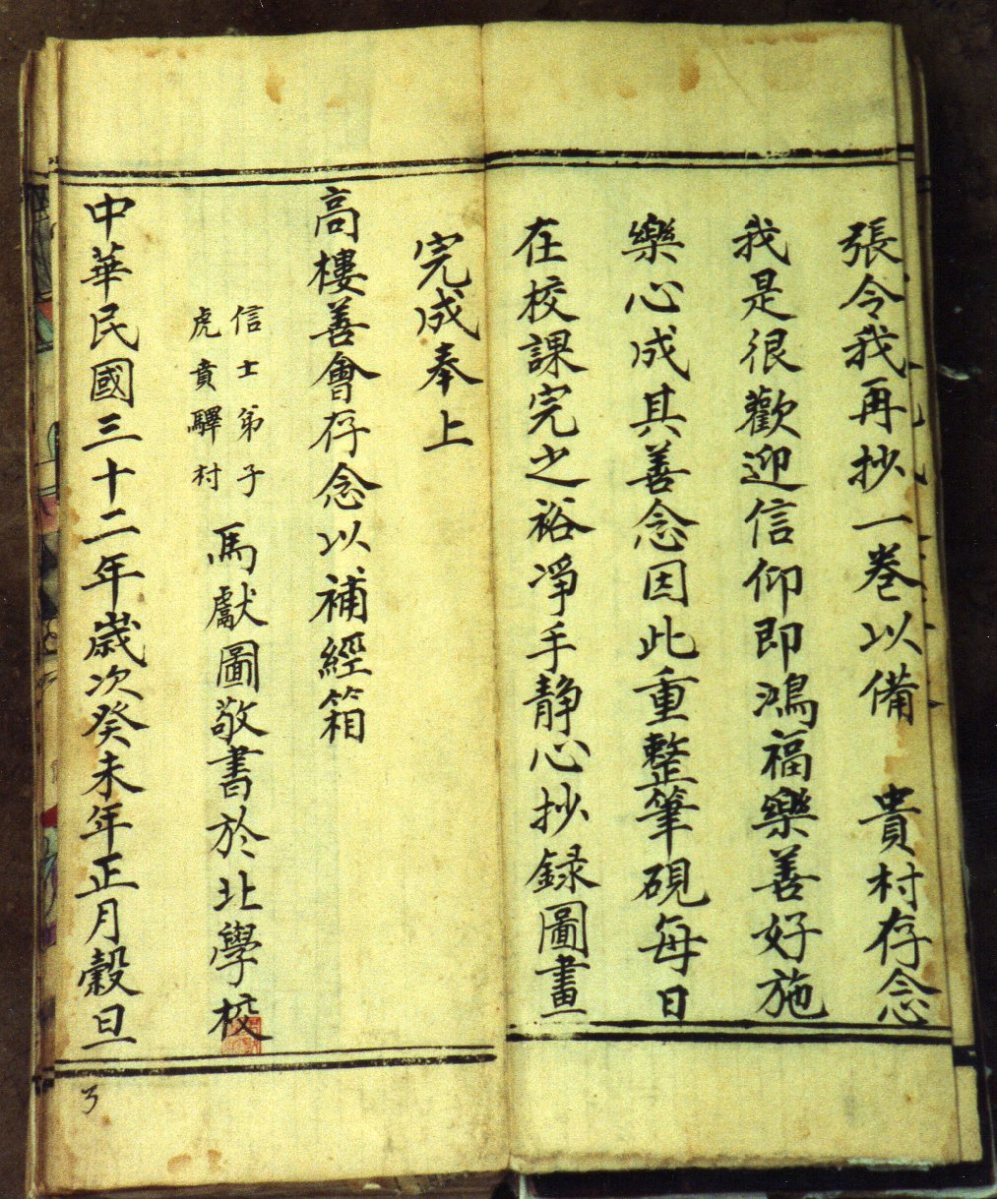 張令我再抄一卷以備　貴村存念
我是很歡迎信仰即鴻福樂善好施
樂心成其善念因此重整筆硯每日
在校課完之裕凈手静心抄録圖畫
完成奉上
高樓善會存念以補經箱
信士弟子
虎賁驛村
馬獻圖敬書於北學校
中華民國三十二年歲次癸未年正月穀旦